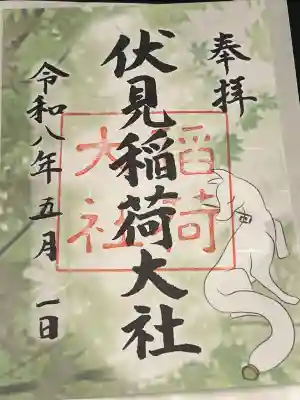 奉拝
伏見稲荷大社
稲荷
大社
令和八年五月一日